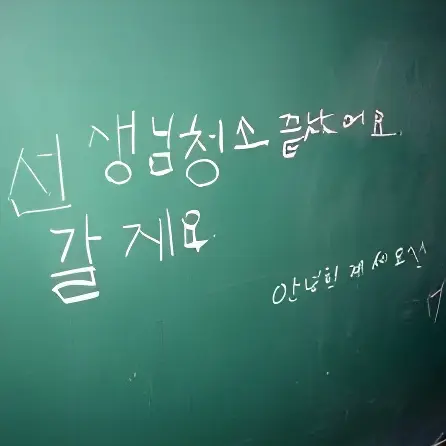 선생님청소 끝났어요.
갈 게요.
안녕히 계세요